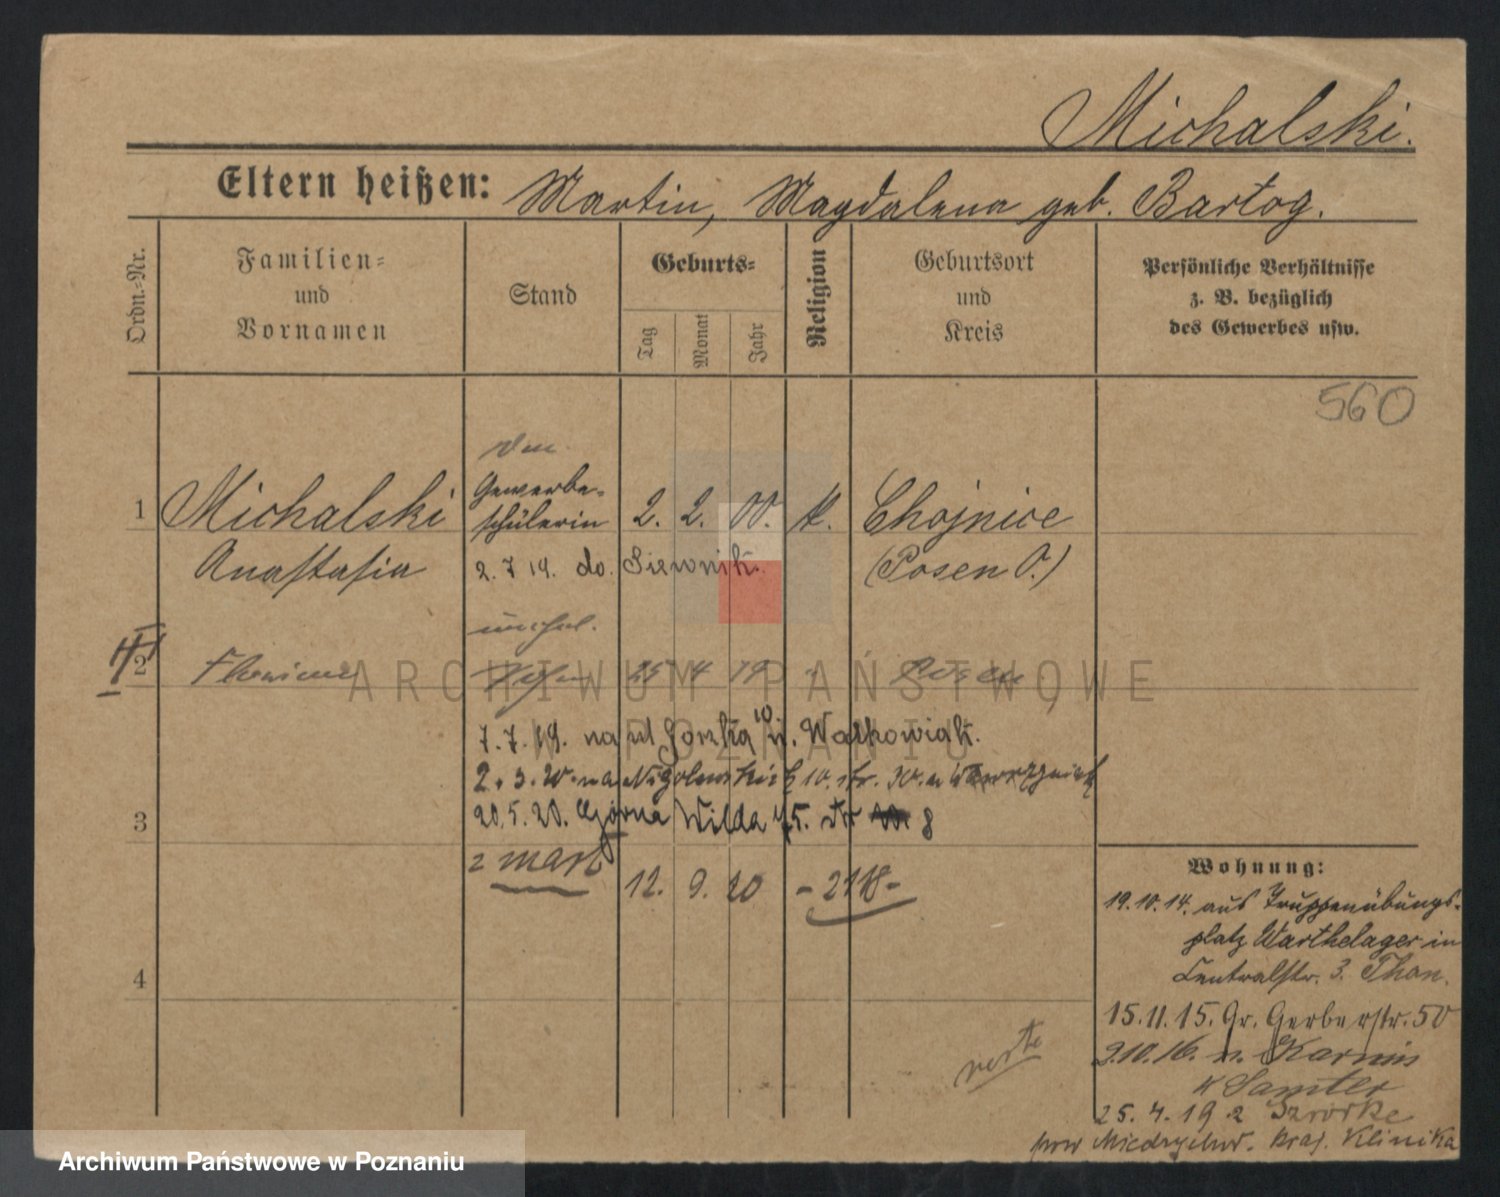 Michalski.
Eltern heißen: Martin, Magdalena geb. Bartog.
Ordn.-Nr.
Familien-
und
Vornamen
Stand
Geburts-
Tag
Monat
Jahr
Religion
Geburtsort
und
Kreis
Persönliche Verhältnisse
z. B. bezüglich
des Gewerbes usw.
560
Gewerbe-
1 Michalski schülerin 2. 2. 00. k. Chojnice
Anastasia 2.7 19. do. Siewnik. (Posen O.)
unehel.
2 25 4 19 Posen
7.7.19. na ul Gorzka 10 u. Walkowiak.
2.3.20. na 10. str. 30. u
3 20.5.20. Górna Wilda 75. 8
12. 9. 20 -2118-
Wohnung:
19.10.14. aus Truppenübungs-
platz Warthelager in
4 Centralstr. 3. Thon.
15.11.15. Gr. Gerberstr. 50
9.10.16. n. Karmin
K Samter
25.4.19 z
pow Miedzychod. Klinika
ARCHIWUM PAŃSTWOWE
W POZNANIU
Archiwum Państwowe w Poznaniu